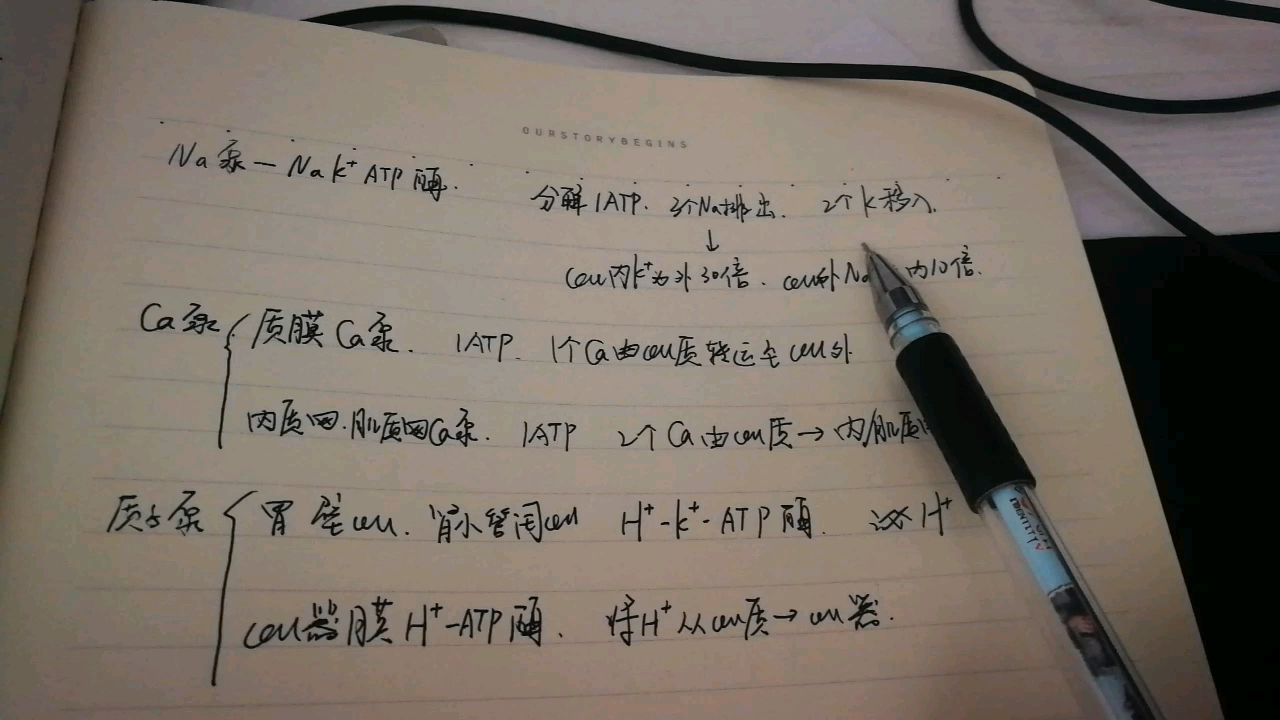 OURSTORYBEGINS
Na泵—Na K⁺ ATP酶. 分解1ATP. 3个Na排出. 2个K移入.
↓
cell内K⁺为外30倍. cell外Na 内10倍.
Ca泵 { 质膜Ca泵. 1ATP. 1个Ca由cell质转运至cell外
内质网.肌质网Ca泵. 1ATP 2个Ca由cell质→内/肌质
质子泵 { 胃壁cell. 肾小管闰cell H⁺-K⁺-ATP酶. H⁺
cell器膜H⁺-ATP酶. 将H⁺从cell质→cell器.